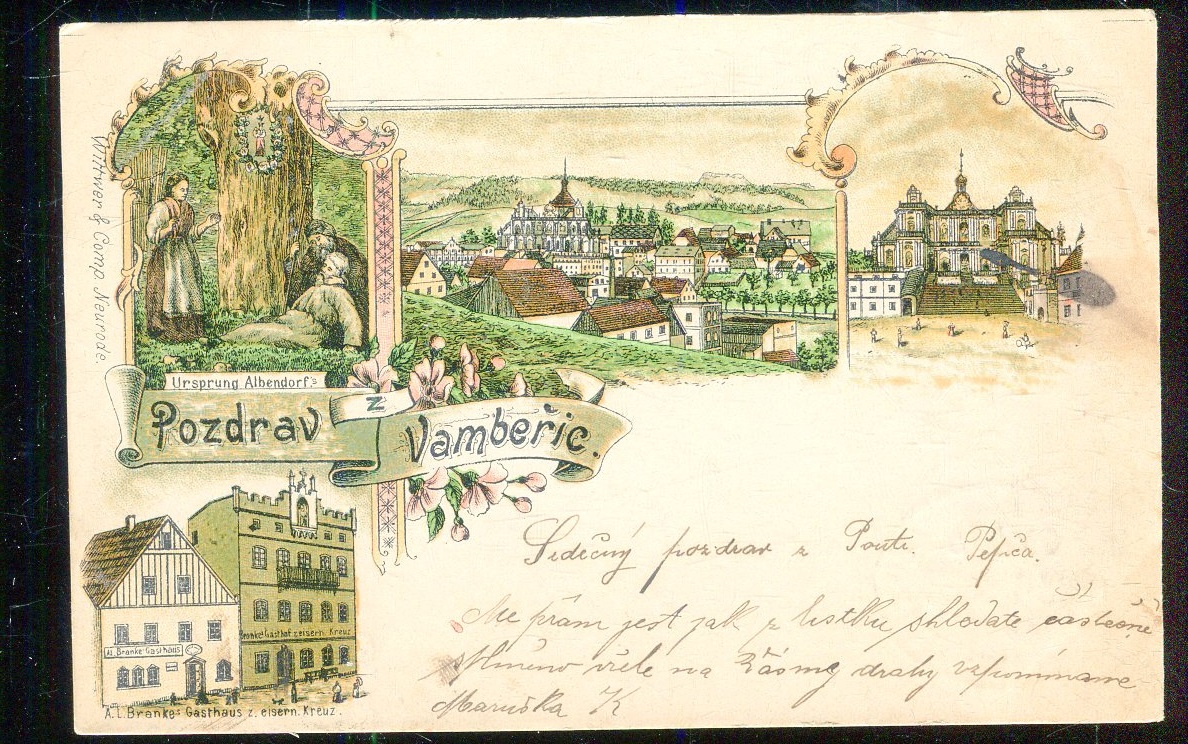 Wittwer & Comp. Neurode.
Ursprung Albendorf's
Pozdrav z Vambeřic.
Al. Branke Gasthaus
Branke Gasthof z. eisern. Kreuz
A. L. Branke's Gasthaus z. eisern. Kreuz.
Srdečný pozdrav z Pouti. Pepíča.
jest jak z lístku shledáte
vřele na drahý vzpomínáme
Maruška K